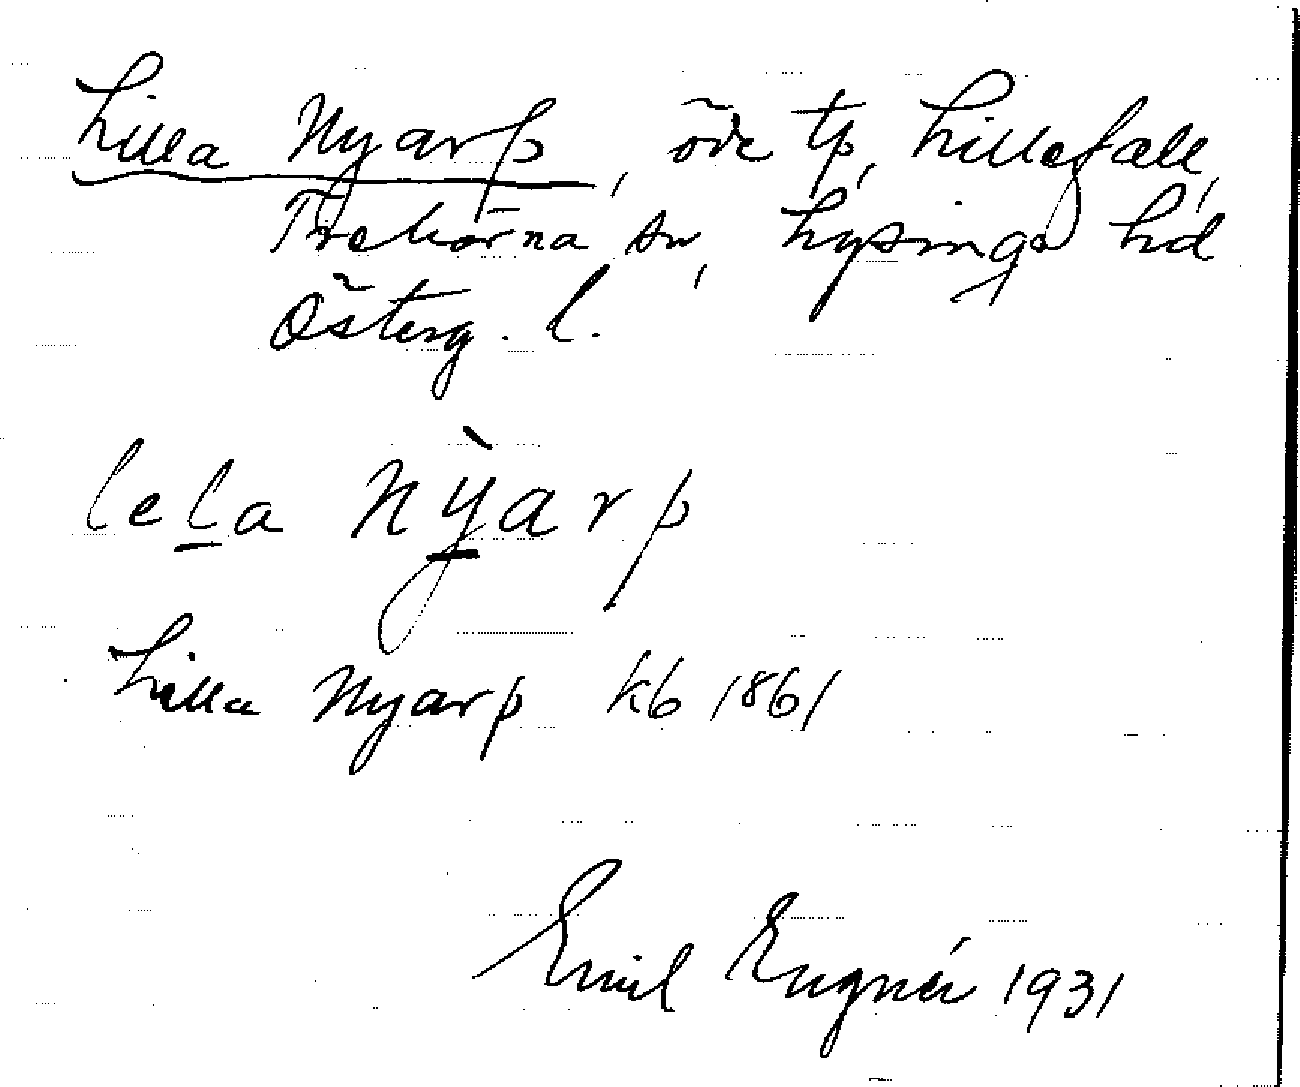 Lilla Nyarp, öde tp, Lillefall,
Trehörna sn, Lysings hd
Österg. l.
lela nỳarp
Lilla Nyarp kb 1861
Emil Engnér 1931